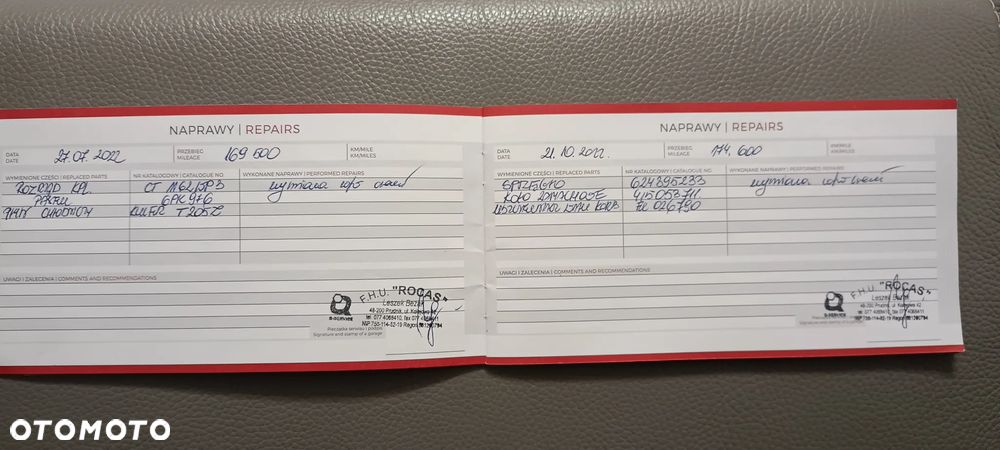 NAPRAWY | REPAIRS
DATA
DATE
27.07. 2022
PRZEBIEG
MILEAGE
169 500
KM/MILE
KM/MILES
WYMIENIONE CZĘŚCI | REPLACED PARTS
NR KATALOGOWY | CATALOGUE NO.
WYKONANE NAPRAWY | PERFORMED REPAIRS
ROZRZĄD KPL. CT wymiana
6PK 976
T205Z
UWAGI I ZALECENIA | COMMENTS AND RECOMMENDATIONS
F.H.U. "ROCAS"
Leszek
48-200 Prudnik, ul. Kolejowa 42
tel. 077 4068410, fax 077 4068411
NIP 755-114-52-19 Regon
Q-SERVICE
Pieczątka serwisu i podpis
Signature and stamp of a garage
NAPRAWY | REPAIRS
DATA
DATE
21. 10. 2022.
PRZEBIEG
MILEAGE
174 600
KM/MILE
KM/MILES
WYMIENIONE CZĘŚCI | REPLACED PARTS
NR KATALOGOWY | CATALOGUE NO.
WYKONANE NAPRAWY | PERFORMED REPAIRS
SPRZĘGŁO 624395233 wymiana
KOŁO 415053711
026790
UWAGI I ZALECENIA | COMMENTS AND RECOMMENDATIONS
F.H.U. "ROCAS"
Leszek
48-200 Prudnik, ul. Kolejowa 42
tel. 077 4068410, fax 077 4068411
NIP 755-114-52-19 Regon
Q-SERVICE
Signature and stamp of a garage
OTOMOTO